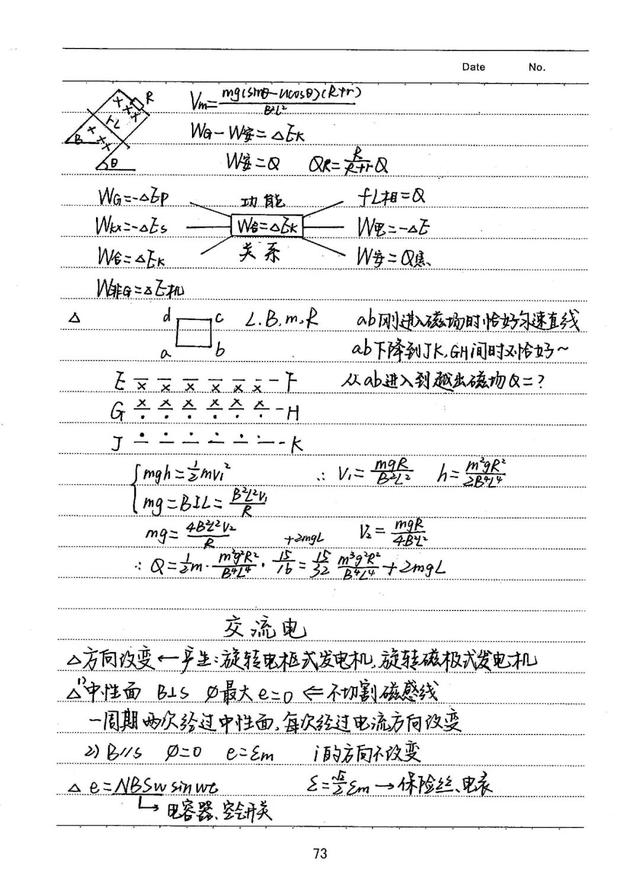 Date No.
R
B L
θ
Vm=mg(sinθ-ucosθ)(R+r)/B²L²
WG-W安=△EK
W安=Q QR=R/(R+r)Q
WG=-△EP 功能 fL相=Q
Wkx=-△Es W合=△EK W电=-△E
W合=△EK 关系 W安=Q焦
W非G=△E机
△ d c L.B.m.R ab刚进入磁场时恰好匀速直线
a b ab下降到JK,GH间时又恰好~
E × × × × × × F 从ab进入到越出磁场Q=?
G × × × × × × H
J K
mgh=½mv₁² ∴ V₁=mgR/B²L² h=m²gR²/2B⁴L⁴
mg=BIL=B²L²V₁/R
mg=4B²L²V₂/R +2mgL V₂=mgR/4B²L²
∴ Q=½m·m²g²R²/B⁴L⁴·15/16=15/32 m³g²R²/B⁴L⁴+2mgL
交流电
△方向改变←产生:旋转电枢式发电机.旋转磁极式发电机
△ 1)中性面 B⊥S ∅最大 e=0 ⇐不切割磁感线
一周期两次经过中性面,每次经过电流方向改变
2) B//S ∅=0 e=εm i的方向不改变
△ e=NBSw sinwt ε=√2/2 εm→保险丝、电表
↳电容器、空气开关
73